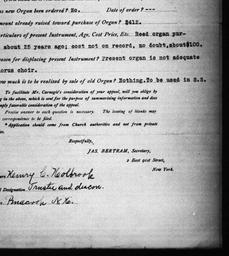 new Organ been ordered? No. Date of order? ---
mount already raised toward purchase of Organ? $412.
rticulars of present Instrument, Age, Cost Price, Etc. Reed organ pur-
about 25 years ago; cost not on record, no doubt, about $100.
ason for displacing present Instrument? Present organ is not adequate
orus choir.
w much is to be realized by sale of old Organ? Nothing. To be used in S.S.
To facilitate Mr. Carnegie's consideration of your appeal, will you oblige by
g in the above, which is sent for the purpose of summarizing information and does
mply favorable consideration of the appeal.
Precise answer to each question is necessary. The leaving of blanks may
correspondence to be filed.
* Application should come from Church authorities and not from private
Respectfully,
JAS. BERTRAM, Secretary,
2 East 91st Street,
New York.
Henry C. Holbrook
Designation. Trustee and deacon.
Penacook N.H.